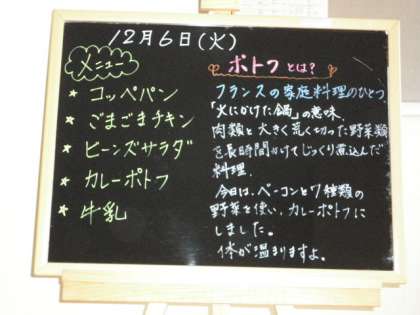 12月6日(火)
メニュー
★ コッペパン
★ ごまごまチキン
★ ビーンズサラダ
★ カレーポトフ
★ 牛乳
ポトフとは?
フランスの家庭料理のひとつ
「火にかけた鍋」の意味.
肉類と大きく荒く切った野菜類
を長時間かけてじっくり煮込んだ
料理.
今日は、ベーコンと7種類の
野菜を使い、カレーポトフに
しました。
体が温まりますよ。